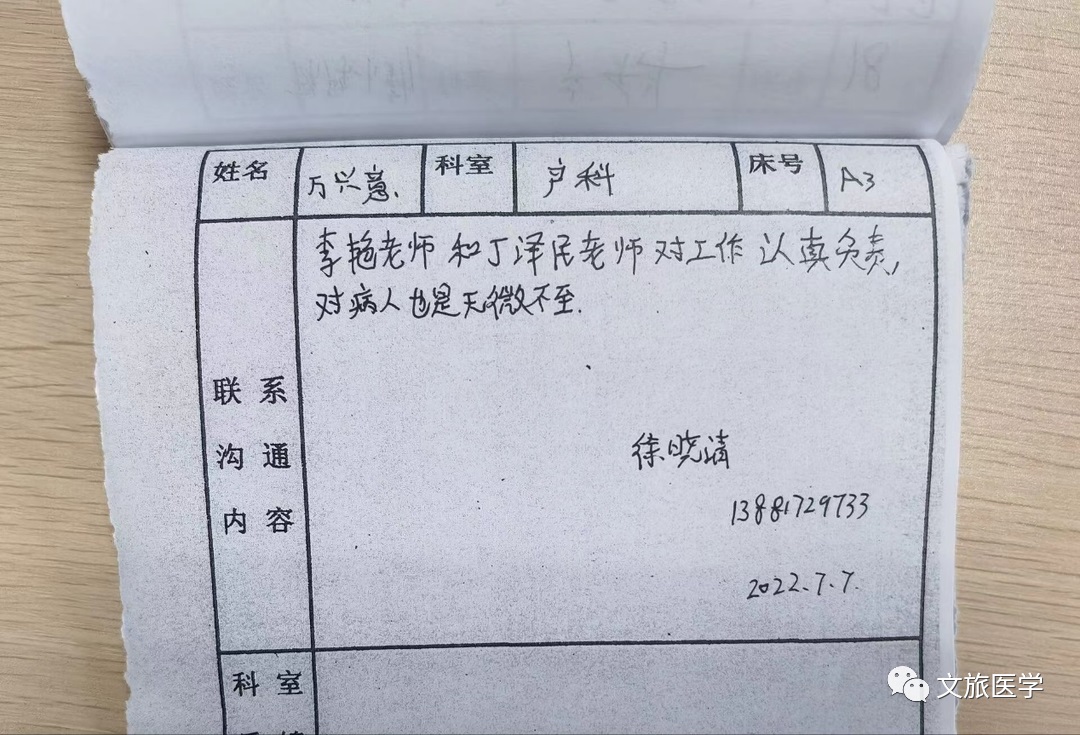 姓名 万兴惠. 科室 产科 床号 A3
李艳老师和丁泽民老师对工作认真负责,
对病人也是无微不至.
联系
沟通
内容
徐晓清
13881729733
2022.7.7.
科室
文旅医学